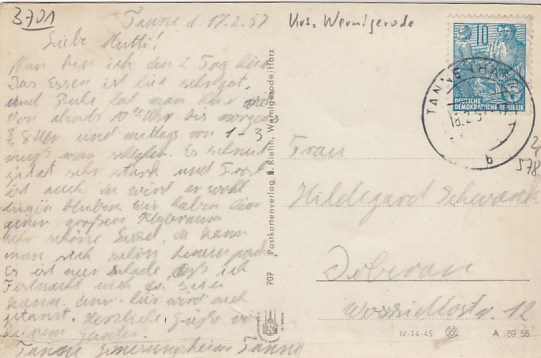 3701
Tanne d. 17.2.57
Krs. Wernigerode
Liebe Mutti!
Nun bin ich den 2 Tag hier
Das Essen ist hier sehr gut,
und Ruhe hat man hier
Von abends 10 Uhr bis morgens
Uhr und mittags von 1-3
muß man schlafen. Es schneit
sehr stark und Frost
ist auch da wird er wohl
bleiben. Wir haben hier
einen großen
sehr schöne Sessel, da kann
man sich schön
Es ist nur schade, daß ich
Fastnacht nicht
kann. denn hier wird auch
getanzt. Herzliche Grüße von
Deinem
Tanne Genesungsheim Tanne
707 Postkartenverlag Riehn, Wernigerode/Harz
10
DEUTSCHE
DEMOKRATISCHE REPUBLIK
TANNE (HARZ)
18.2.57
b
Frau
Hildegard Schwarck
Doberan
12
578
IV-14-45
A 89 56